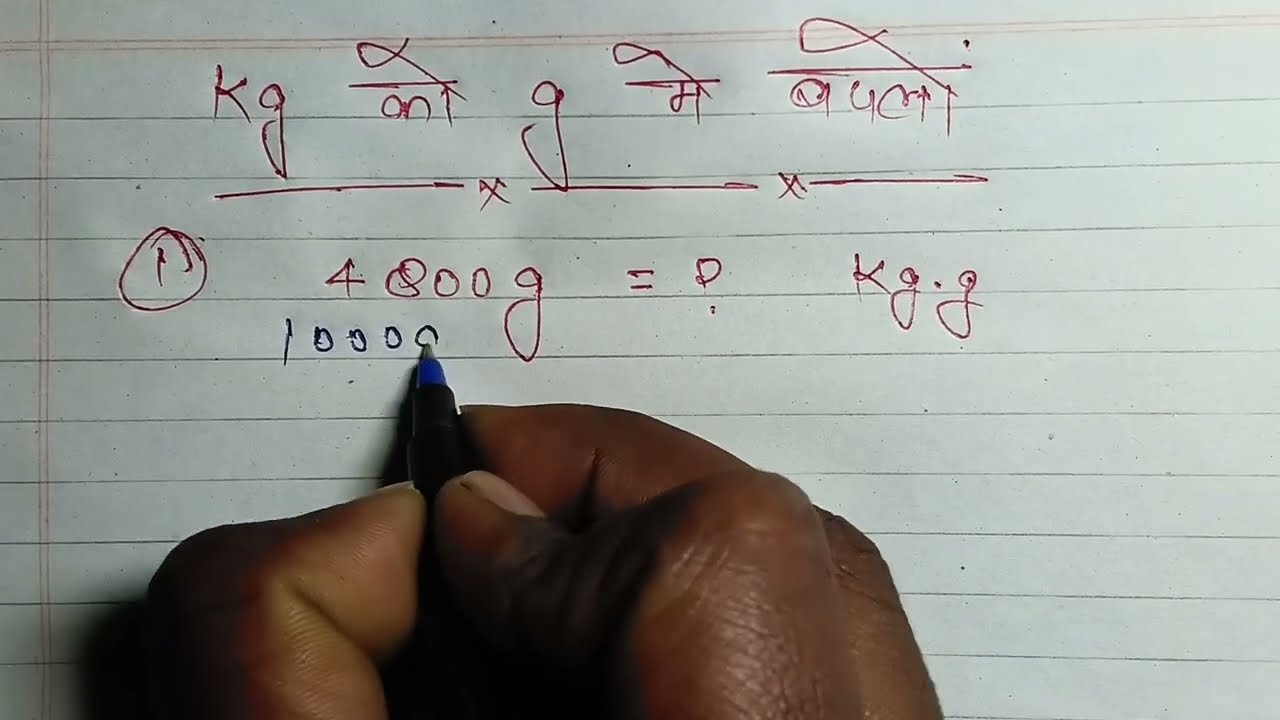 Kg को g मे बदलो
x x
1) 4800g = ? Kg.g
10000